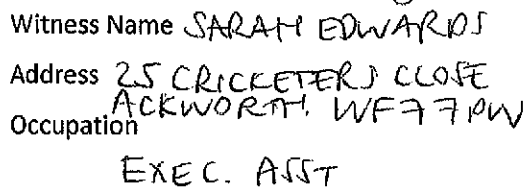 Witness Name SARAH EDWARDS
Address 25 CRICKETERS CLOSE
ACKWORTH. WF7 7PW
Occupation
EXEC. ASST